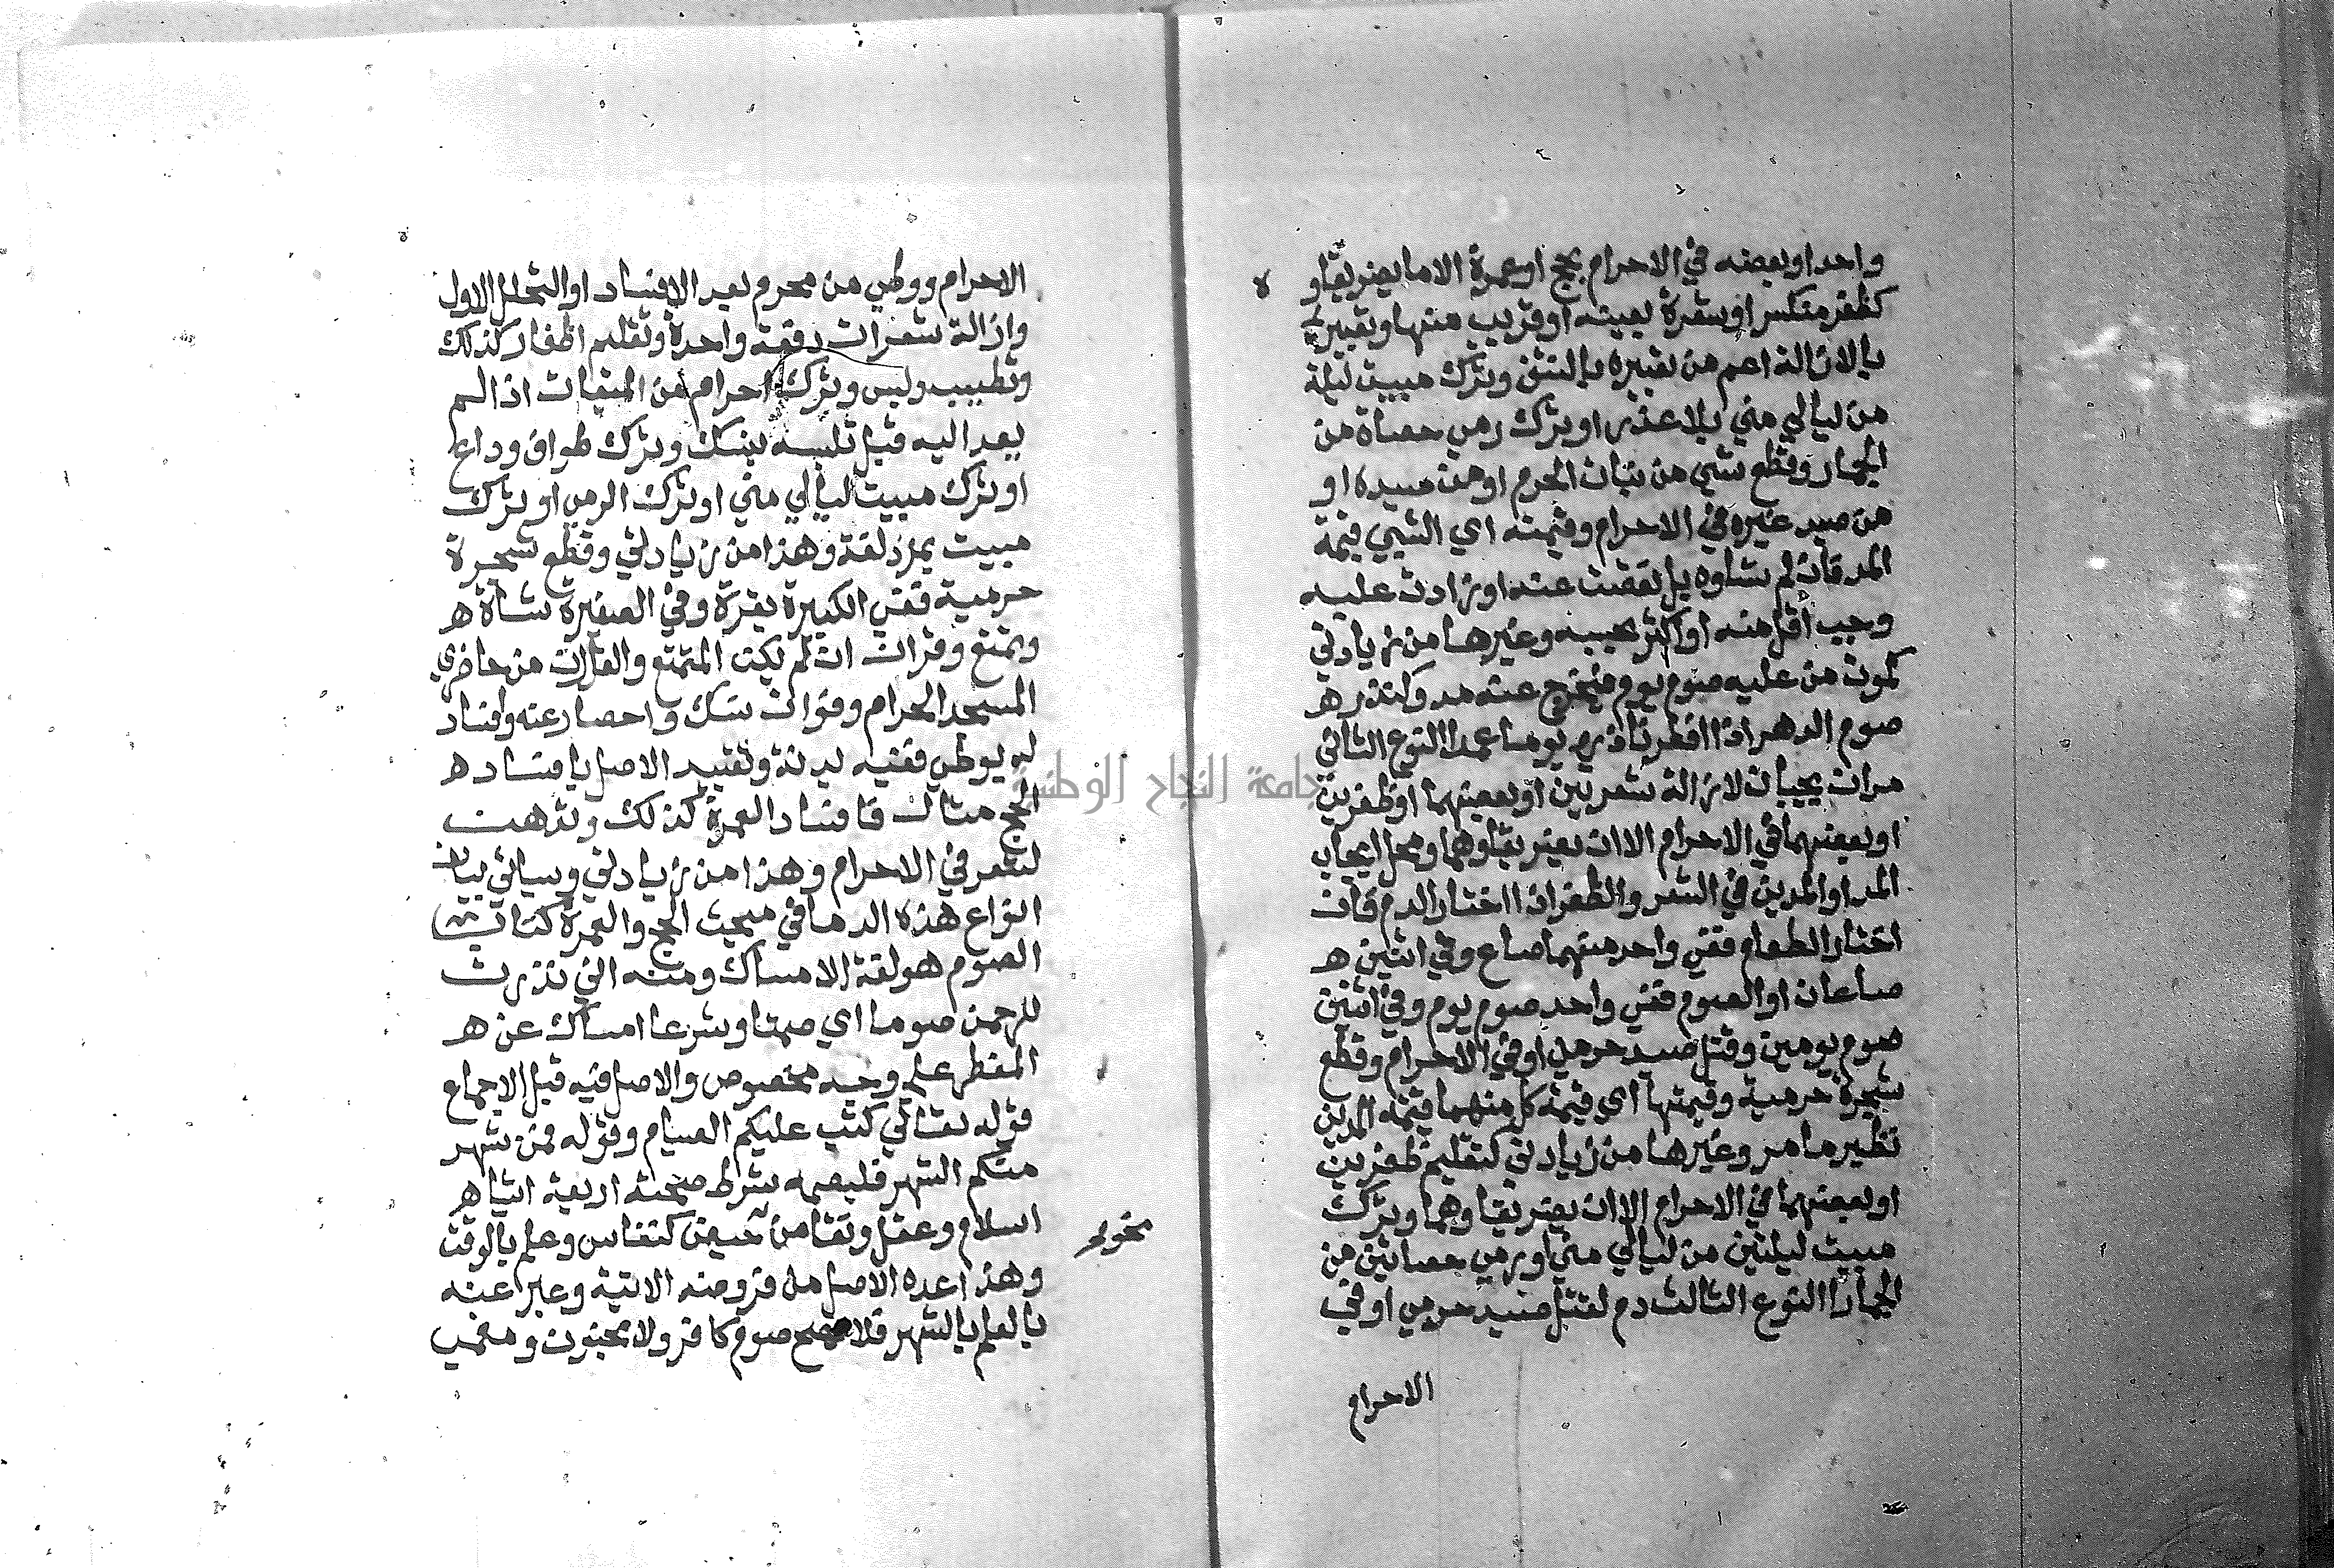 واحد او بعضه في الاحرام بحج او عمرة الا ما يضر بقاوه
كظفر منكسر او شعرة بعينه او قريب منها وتعبيري
بالازالة اعم من تعبيره بالنتف وترك مبيت ليلة
من ليالي مني بلا عذر او ترك رمي حصاة من
الجمار وقطع شي من نبات الحرم او من صيده او
من صيد غيره في الاحرام وقيمته اي الشي قيمة
المد فان لم تساوه بل نقصت عنه او زادت عليه
وجب اقل منه او اكثر بحسبه وغيرها من زيادتي
كموت من عليه صوم يوم فيخرج عنه مد وكنذره
صوم الدهر اذا افطر ناذره يوما عمدا النوع الثاني
مدان يجبان لازالة شعرتين او بعضهما او ظفرين
او بعضهما في الاحرام الا ان يضر بقاوهما ومحل ايجاب
المد او المدين في الشعر والظفر اذا اختار الدم فان
اختار الطعام ففي واحد منهما صاع وفي اثنين ه
صاعان او الصوم ففي واحد صوم يوم وفي اثنين
صوم يومين وقتل صيد حرمي او في الاحرام وقطع
شجرة حرمية وقيمتها اي قيمة كل منهما قيمة المدين
نظير ما مر وغيرها من زيادتي كتقليم ظفرين
او بعضهما في الاحرام الا ان يضر بقاوهما وترك
مبيت ليلتين من ليالي مني او رمي حصاتين من
الجمار النوع الثالث دم لقتل صيد حرمي او في
الاحرام
الاحرام ووطي من محرم بعد الافساد او التحلل الاول
وازالة شعرات دفعة واحدة وتقليم اظفار كذلك
وتطييب ولبس وترك احرام من الميقات اذا لم
يعد اليه قبل تلبسه بنسك وترك طواف وداع
او ترك مبيت ليالي مني او ترك الرمي او ترك
مبيت بمزدلفة وهذا من زيادتي وقطع شجرة
حرمية ففي الكبيرة بقرة وفي الصغيرة شاة ه
وتمتع وقران ان لم يكن المتمتع والقارن من حاضري
المسجد الحرام وفوات نسك واحصار عنه وافساد
له بوطي ففيه بدنة وتقييد الاصل بافساد ه
الحج مثال فافساد العمرة كذلك وتدهين
لشعر في الاحرام وهذا من زيادتي وسياتي بيان
انواع هذه الدما في مبحث الحج والعمرة كتاب
الصوم هو لغة الامساك ومنه اني نذرت
للرحمن صوما اي صمتا وشرعا امساك عن ه
المفطر علي وجه مخصوص والاصل فيه قبل الاجماع
قوله تعالي كتب عليكم الصيام وقوله فمن شهد
منكم الشهر فليصمه شرط صحته اربعة اشيا ه
اسلام وعقل ونقا من نحو حيض كنفاس وعلم بالوقت
وهذا عده الاصل من فروضه الاتية وعبر عنه
بالعلم بالشهر فلا يصح صوم كافر ولا مجنون ومغمي
جامعة النجاح الوطنية